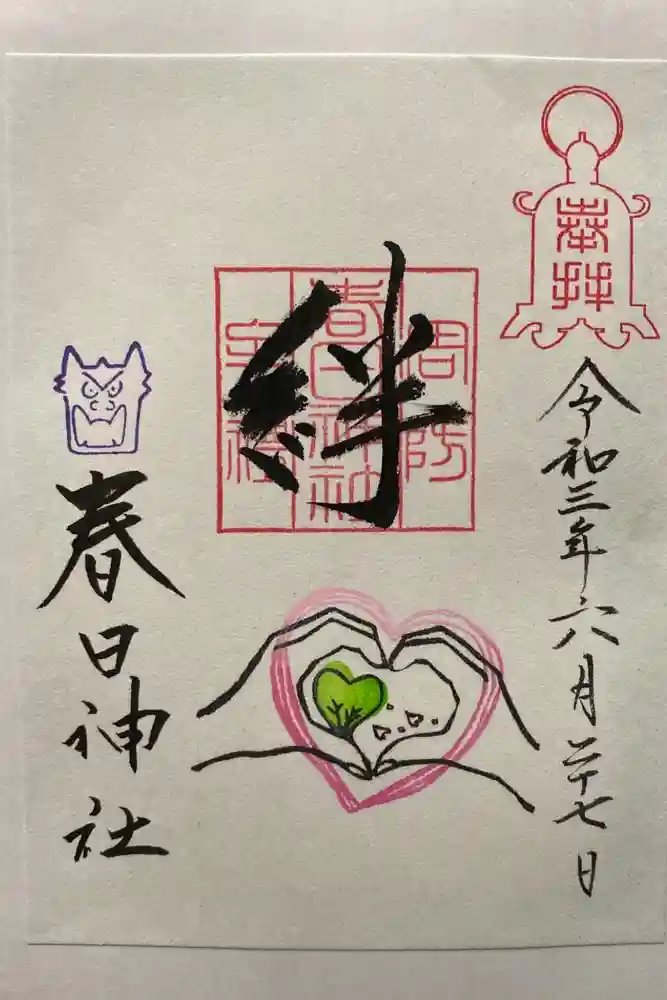 奉拝
令和三年六月二十七日
周防
春日神社
宮市
絆
春日神社